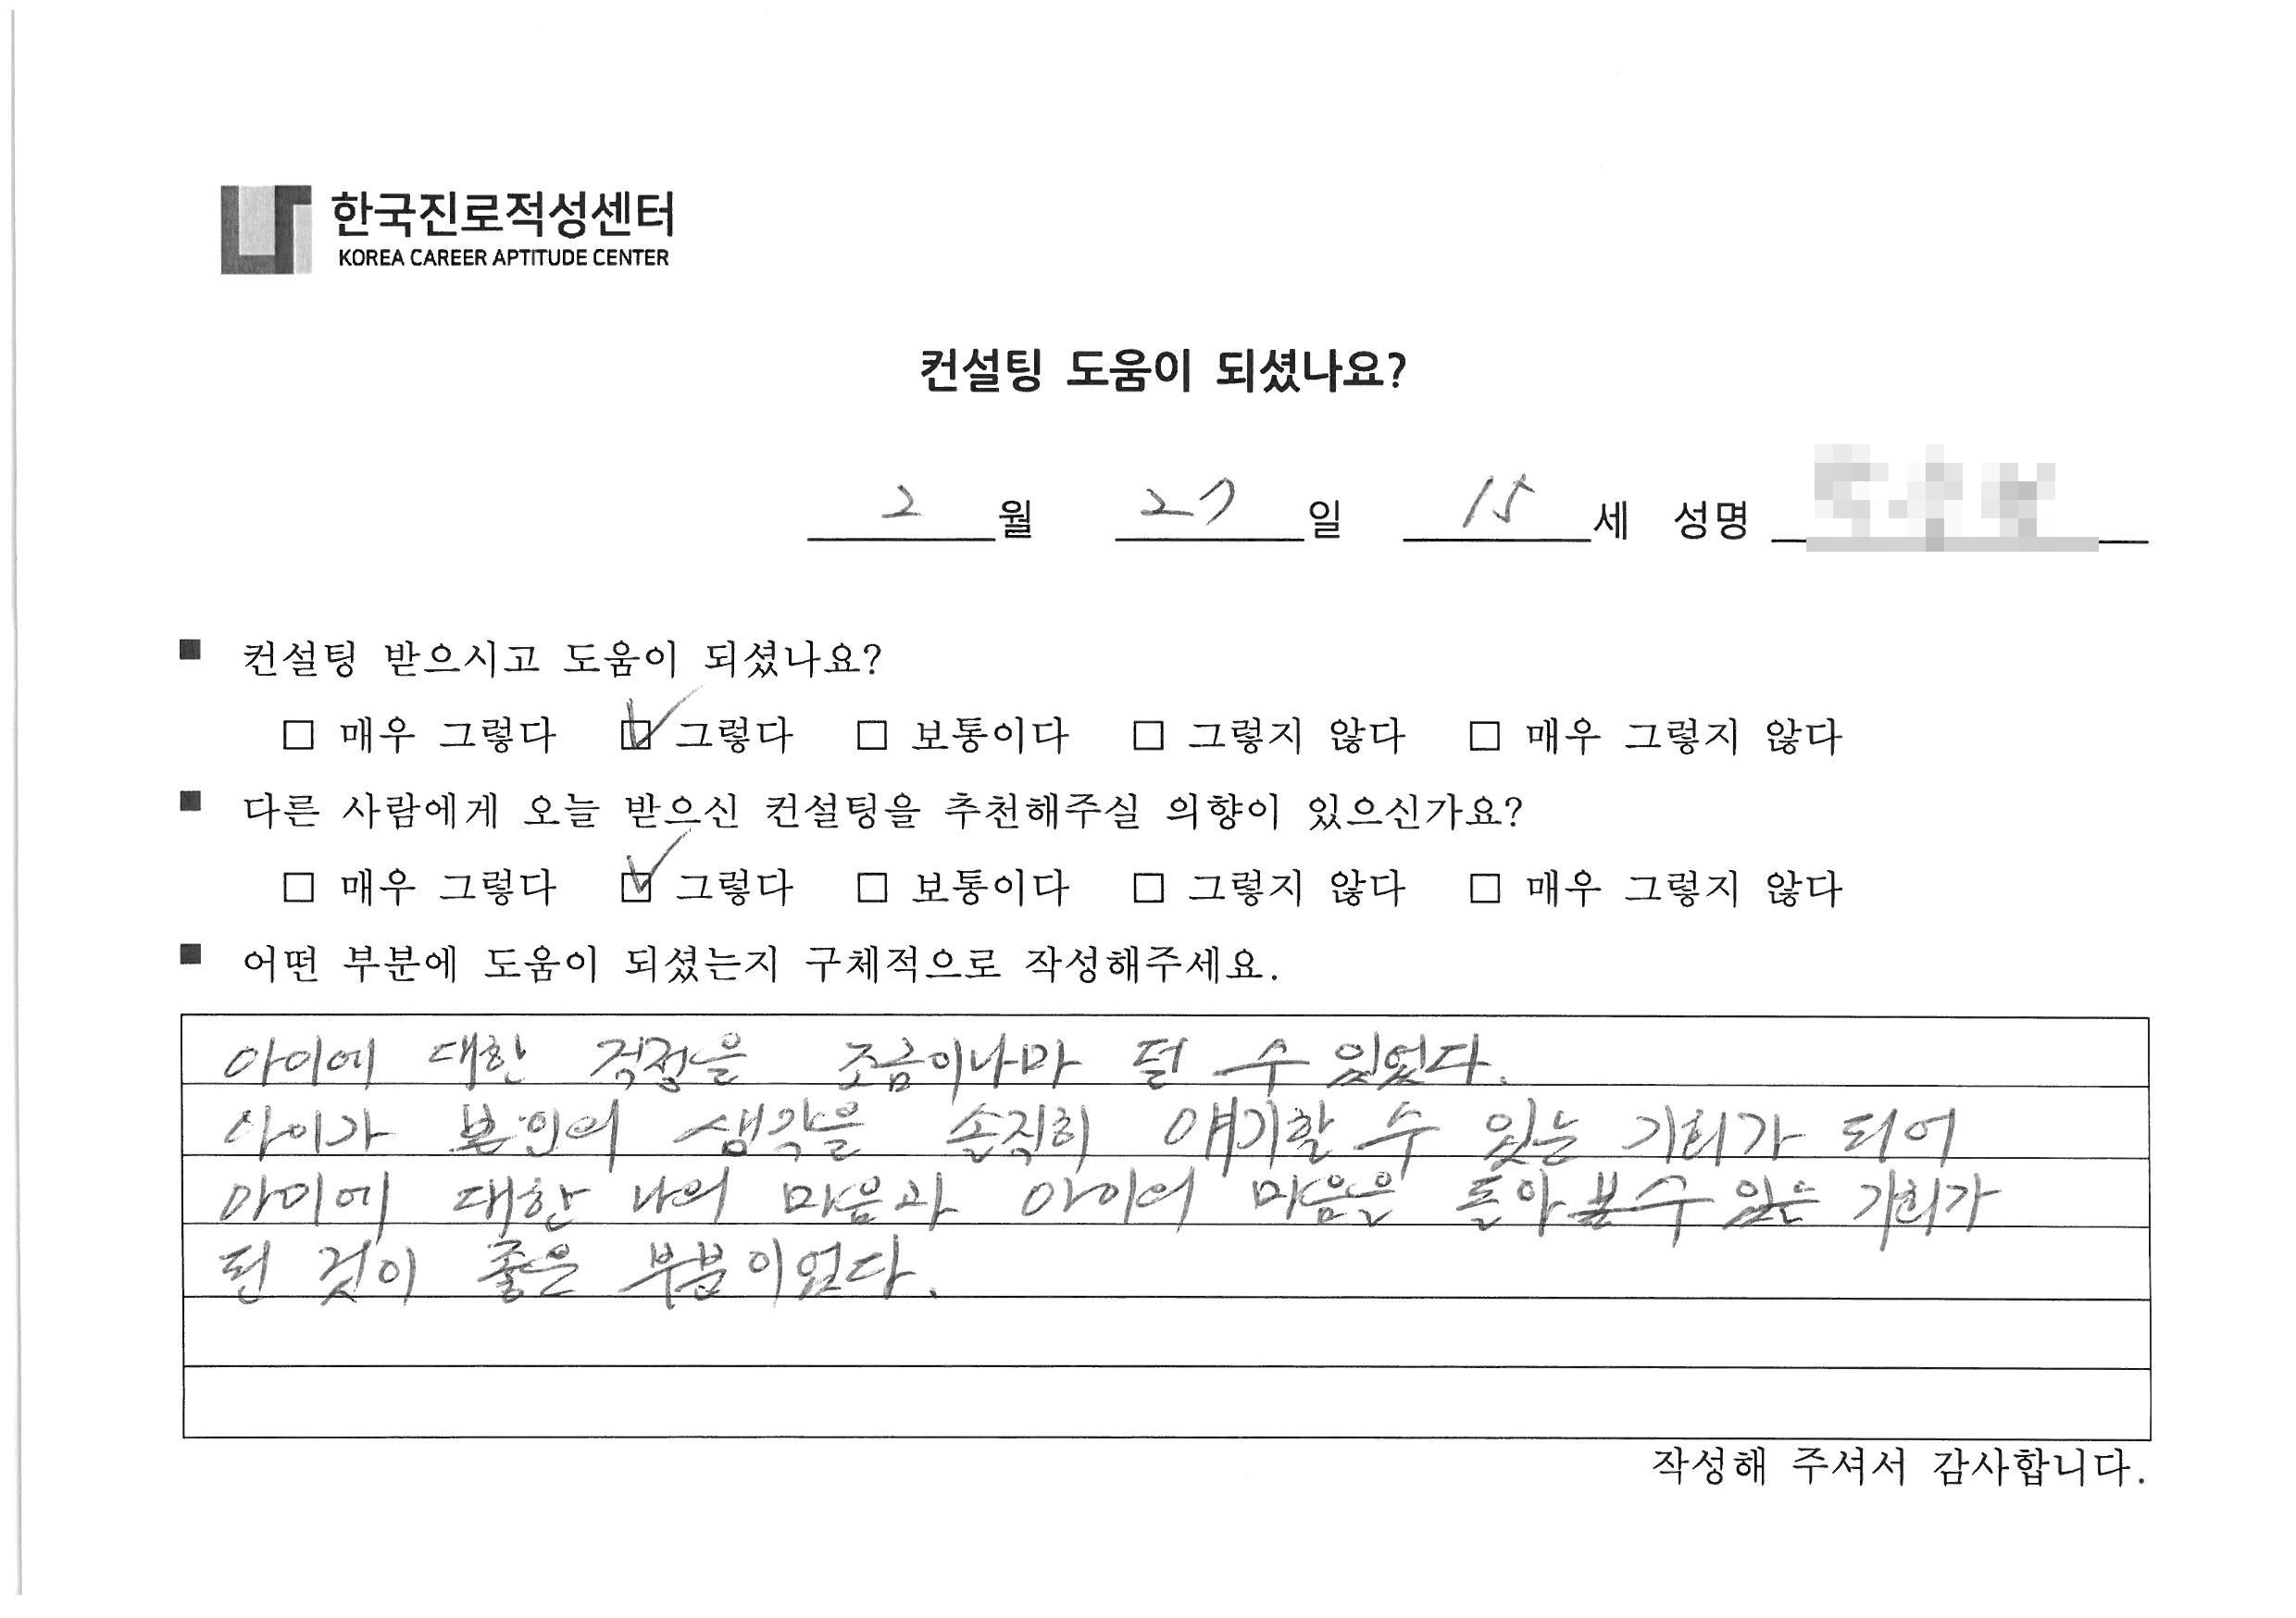 한국진로적성센터
KOREA CAREER APTITUDE CENTER
컨설팅 도움이 되셨나요?
2 월 27 일 15 세 성명
■ 컨설팅 받으시고 도움이 되셨나요?
□ 매우 그렇다 ☑ 그렇다 □ 보통이다 □ 그렇지 않다 □ 매우 그렇지 않다
■ 다른 사람에게 오늘 받으신 컨설팅을 추천해주실 의향이 있으신가요?
□ 매우 그렇다 ☑ 그렇다 □ 보통이다 □ 그렇지 않다 □ 매우 그렇지 않다
■ 어떤 부분에 도움이 되셨는지 구체적으로 작성해주세요.
아이에 대한 걱정을 조금이나마 덜 수 있었다.
아이가 본인의 생각을 솔직히 얘기할 수 있는 기회가 되어
아이에 대한 나의 마음과 아이의 마음을 돌아 볼 수 있는 기회가
된 것이 좋은 부분이었다.
작성해 주셔서 감사합니다.